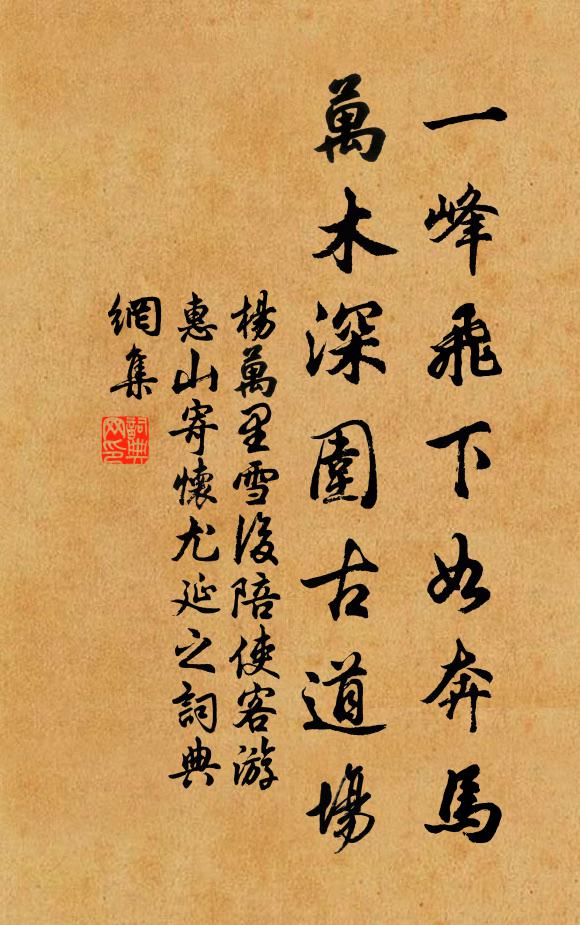 一峰飛下如奔馬
萬木深圍古道場
楊萬里雪後陪使客游
惠山寄懷尤延之詞典
網集
詞典
网印